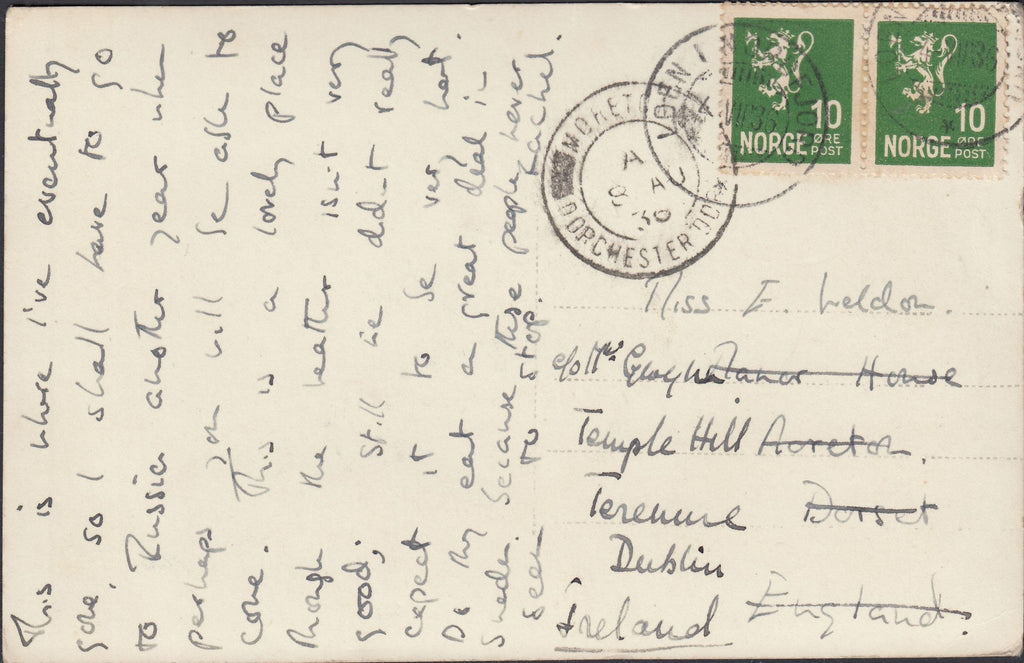 This is where I've eventually
gone, so I shall have to go
to Russia another year when
perhaps you will be able to
come. This is a lovely place
though the weather isn't very
good; still we didn't really
expect it to be very hot.
Do try eat a great deal in
Sweden because these people never
seem to stop. Rachel.
NORGE 10 ØRE POST
NORGE 10 ØRE POST
MORETON
A
8 AU
36
DORCHESTER DORSET
VII 36
Miss E. Weldon.
c/o Mrs Gwynn Manor House
Temple Hill Moreton.
Terenure Dorset
Dublin
Ireland England.